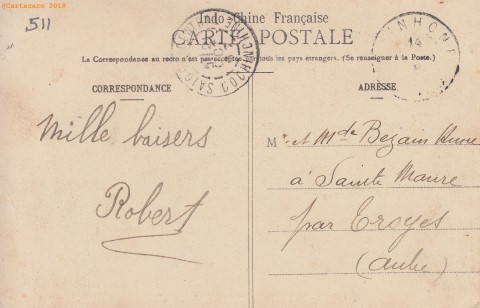 ©Cartacaro 2018
511
Indo-Chine Française
CARTE POSTALE
La Correspondance au recto n'est pas acceptée par tous les pays étrangers. (Se renseigner à la Poste.)
CORRESPONDANCE
ADRESSE
Mille baisers
Robert
M. et Mde Bezain
à Sainte Maure
par Troyes
(Aube)
COCHINCHINE